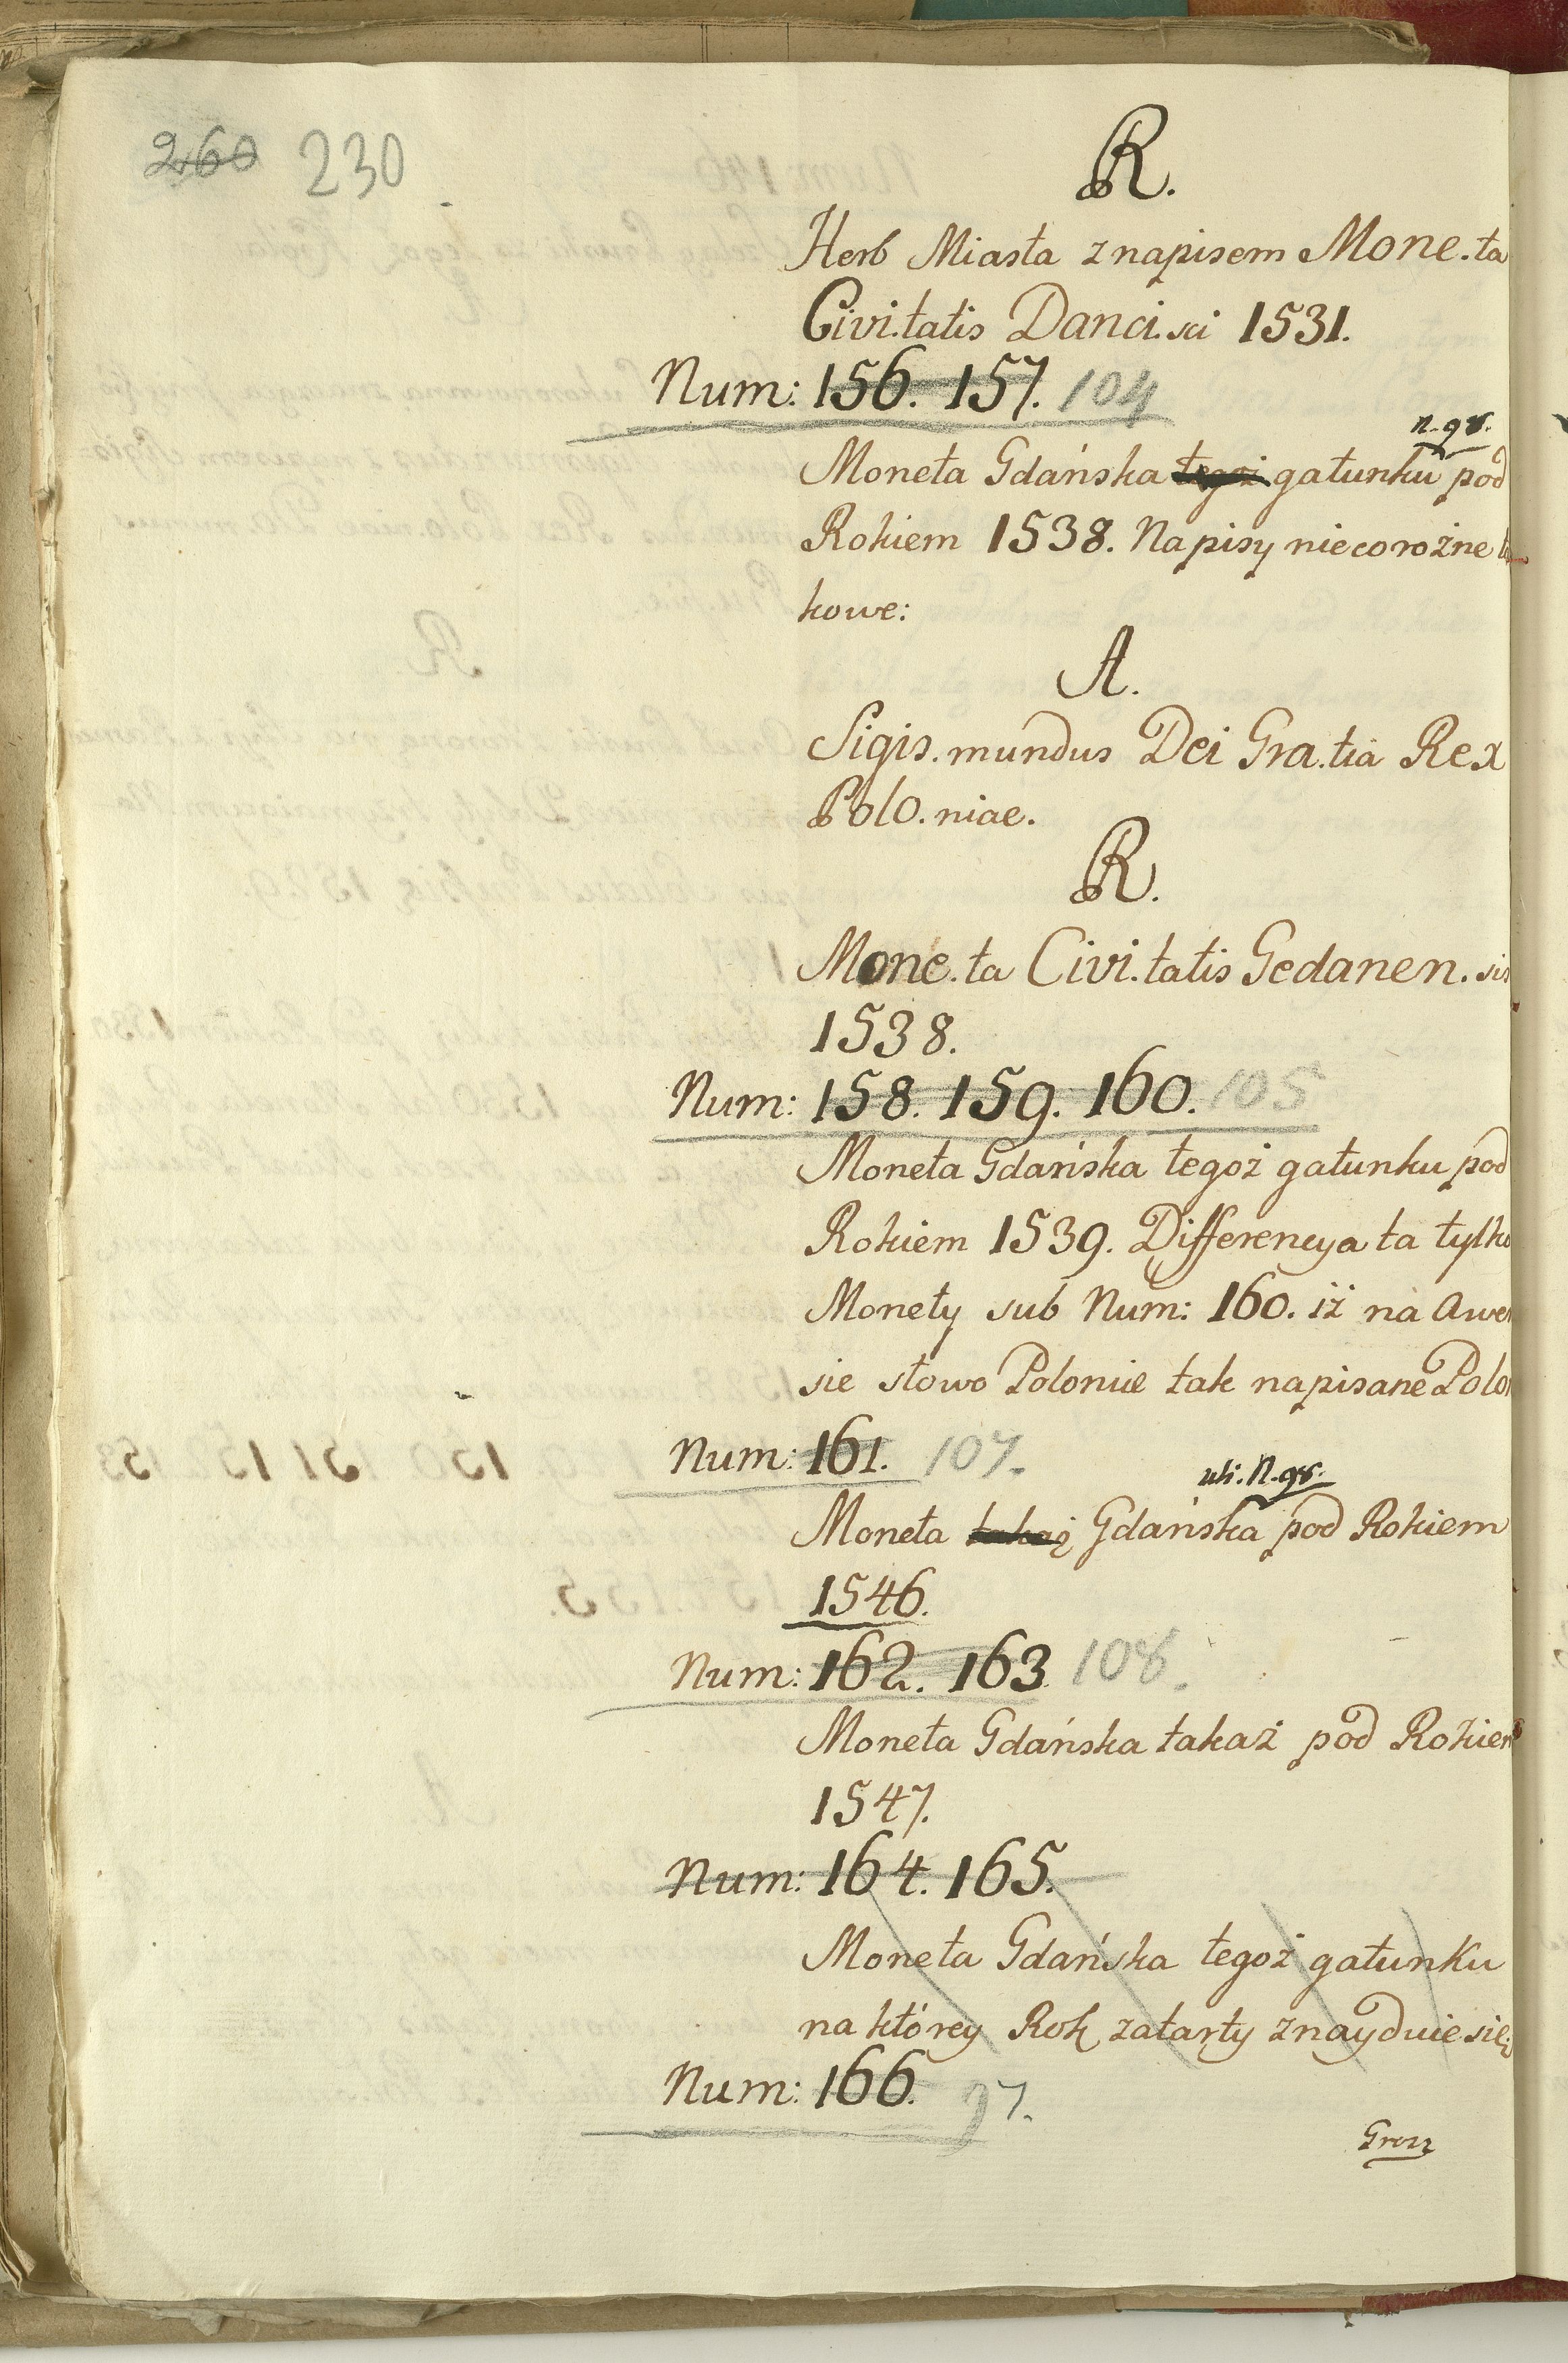 260 230
R.
Herb Miasta z napisem Mone.ta
Civi.tatis Danci.sci 1531.
Num: 156. 157. 104
n. 98.
Moneta Gdańska tegoż gatunku pod
Rokiem 1538. Napisy nieco rożne
kowe:
A.
Sigis.mundus Dei Gra.tia Rex
Polo.niae.
R.
Mone.ta Civi.tatis Gedanen.sis
1538.
Num: 158. 159. 160. 105
Moneta Gdańska tegoż gatunku pod
Rokiem 1539. Differencya ta tylko
Monety sub Num: 160. iż na Awer
sie słowo Poloniæ tak napisane Polon
Num: 161. 107.
uti. N. 98.
Moneta takaż Gdańska pod Rokiem
1546.
Num: 162. 163. 108.
Moneta Gdańska takaż pod Rokiem
1547.
Num: 164. 165.
Moneta Gdańska tegoż gatunku
na którey Rok zatarty znayduie się
Num: 166. 97.
Grosz